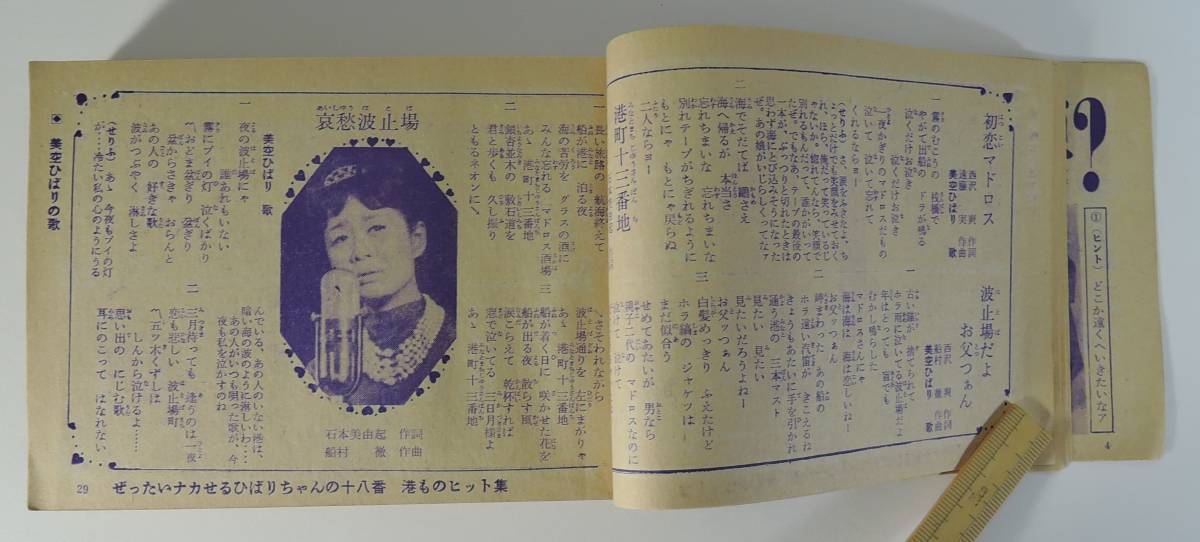 ?
①(ヒント)どこか遠くへいきたいなア
4
初恋マドロス
西沢 爽 作詞
遠藤 実 作曲
美空ひばり 歌
一 霧のむこうの 桟橋で
やがて出船の ドラが鳴る
泣くだけお泣き
泣くだけお泣き
一夜かぎり マドロスだもの
泣いて 泣いて忘れて
くれるならヨー
(せりふ)さ、涙をふきたよ、ち
ょっとだけでも笑顔をみせておく
れ、ほら、俺だって笑っているじ
ゃないか。
別れるもんだって、誰かがいって
たぜ。でもなあ、テープの最後の
一本が、ぷっつりと切れたときは
思わず海にとび込みそうになった
ぜ。あの娘がいじらしくってなァ
二 海でそだてば 鷗さえ
海へ帰るが 本当さ
忘れちまいな 忘れちまいな
別れテープがちぎれるように
もとにゃ もとにゃ戻らぬ
二人ならヨー
港町十三番地
波止場だよ
お父つぁん
西沢 爽 作詞
船村 徹 作曲
美空ひばり 歌
一 古い錨が 捨てられて
ホラ雨に泣いてる波止場だよ
年はとっても 盲でも
むかし鳴らした
マドロスさんにゃ
海は海は 海は恋しいねー
お父ッつぁん
二 縞まわった あの船の
ホラ遠い汽笛が きこえるね
きょうもあたいに手を引かれ
通う港の 三本マスト
見たい 見たい
見たいだろうよねー
お父ッつぁん
三 白髪めっきり ふえたけど
ホラ縞の ジャケツは
まだ似合う
せめてあたいが 男なら
親子二代の マドロスなのに
泣けて 泣けて
一 長い旅路の 航海終えて
船が港に 泊る夜
海の苦労を グラスの酒に
みんな忘れる マドロス酒場
あゝ 港町 十三番地
二 銀杏並木の 敷石道を
君と歩くも 久し振り
ともるネオンに
さそわれながら
波止場通りを 左にまがりゃ
あゝ 港町 十三番地
三 船が着く日に 咲かせた花を
船が出る夜 散らす風
涙こらえて 乾杯すれば
窓で泣いてる 三日月様よ
あゝ 港町 十三番地
哀愁波止場
石本美由起 作詞
船村 徹 作曲
美空ひばり 歌
一 夜の波止場にゃ
誰あれもいない
霧にブイの灯 泣くばかり
〽おどま盆ぎり 盆ぎり
盆からさきゃ おらんと
あの人の 好きな歌
波がつぶやく 淋しさよ
(せりふ)あゝ 今夜もブイの灯
が…冷たい私の心のようにうる
んでいる、あの人のいない港は、
暗い海の波のように淋しいわ……
あの人がいつも唄った歌が、今
夜も私を泣かすのね
二 三月待っても 逢うのは一夜
恋も悲しい 波止場町
〽五ツ木くずしは
しんから泣けるよ……
思い出の にじむ歌
耳にのこって はなれない
◆ 美空ひばりの歌
29 ぜったいナカせるひばりちゃんの十八番 港ものヒット集